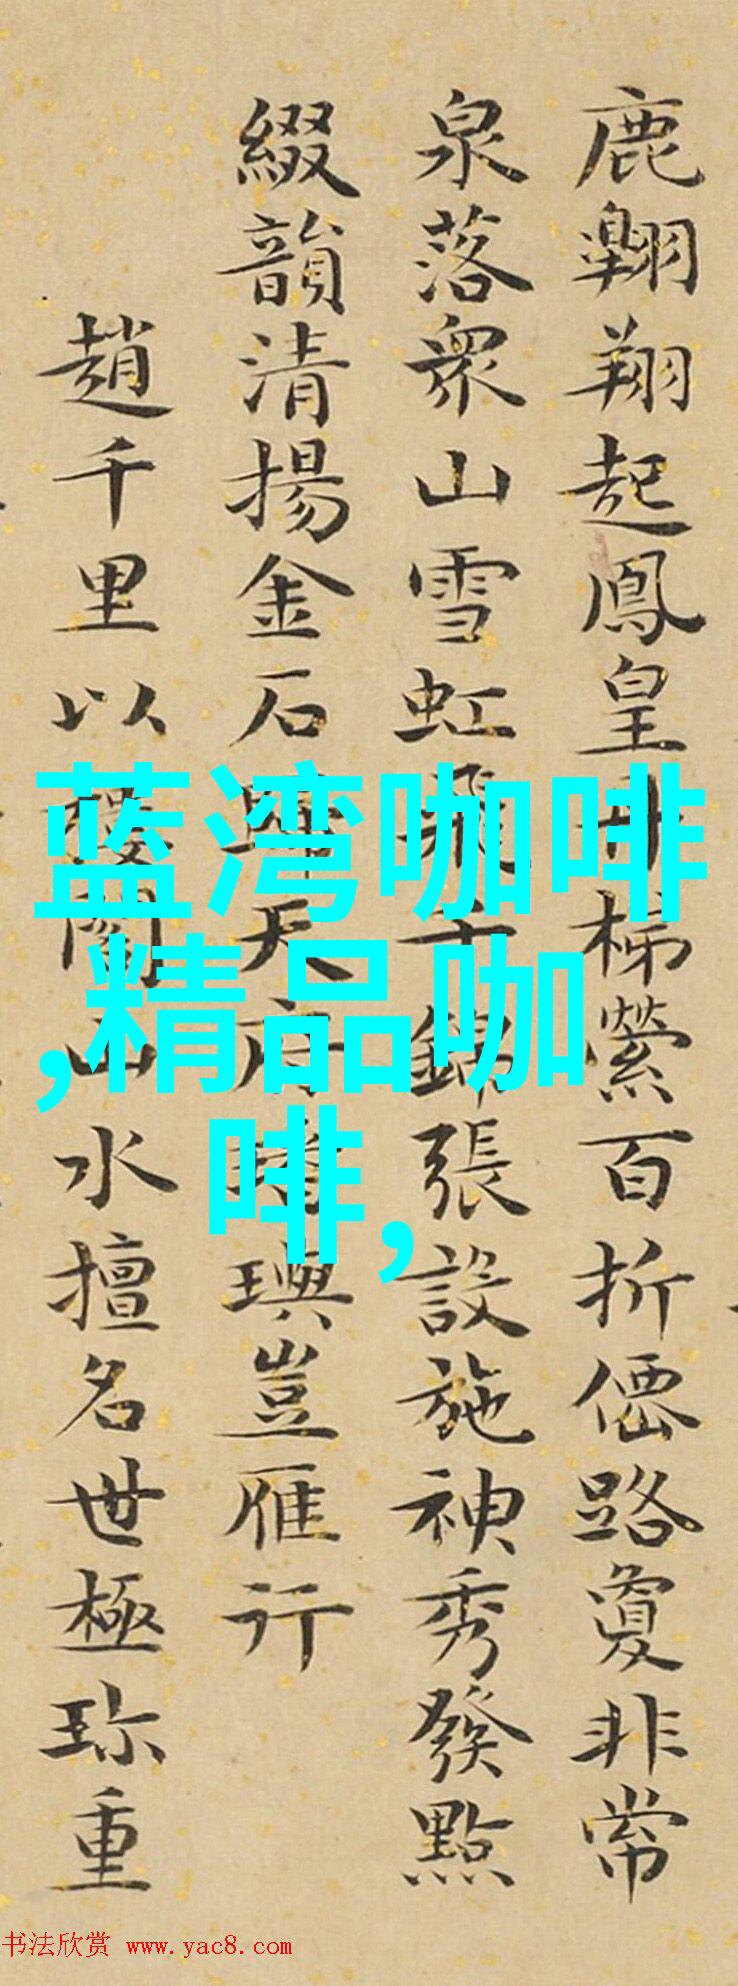 鹿翺翔起鳳皇丹梯縈百折僊路敻非常
泉落衆山雪虹飛千錦張設施神秀發點
綴韻清揚金石天府璵豈雁行
趙千里以樓閣山水擅名世極珍重
蓝湾咖啡
,精品咖
啡,
书法欣赏 www.yac8.com